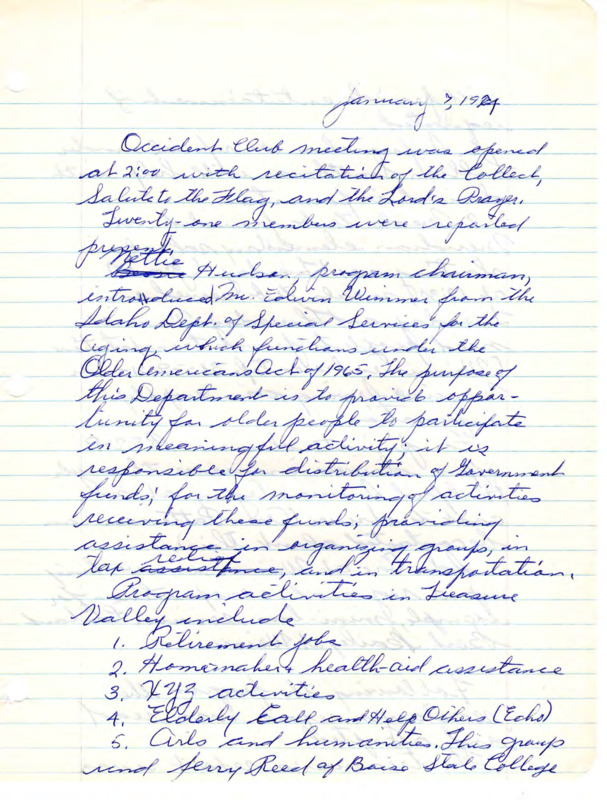 January 7, 1974
Occident Club meeting was opened
at 2:00 with recitation of the Collect,
Salute to the Flag, and the Lord's Prayer.
Twenty-one members were reported
present.
Nettie
Hudson, program chairman,
introduced Mr. Edwin Wimmer from the
Idaho Dept. of Special Services for the
Aging, which functions under the
Older Americans Act of 1965. The purpose of
this Department is to provide oppor-
tunity for older people to participate
in meaningful activity; it is
responsible for distribution of Government
funds; for the monitoring of activities
receiving these funds; providing
assistance in organizing groups, in
relief
tax assistance, and in transportation.
Program activities in Treasure
Valley include
1. Retirement jobs
2. Homemakers health-aid assistance
3. XYZ activities
4. Elderly Call and Help Others (Echo)
5. Arts and humanities. This group
und Jerry Reed of Boise State College